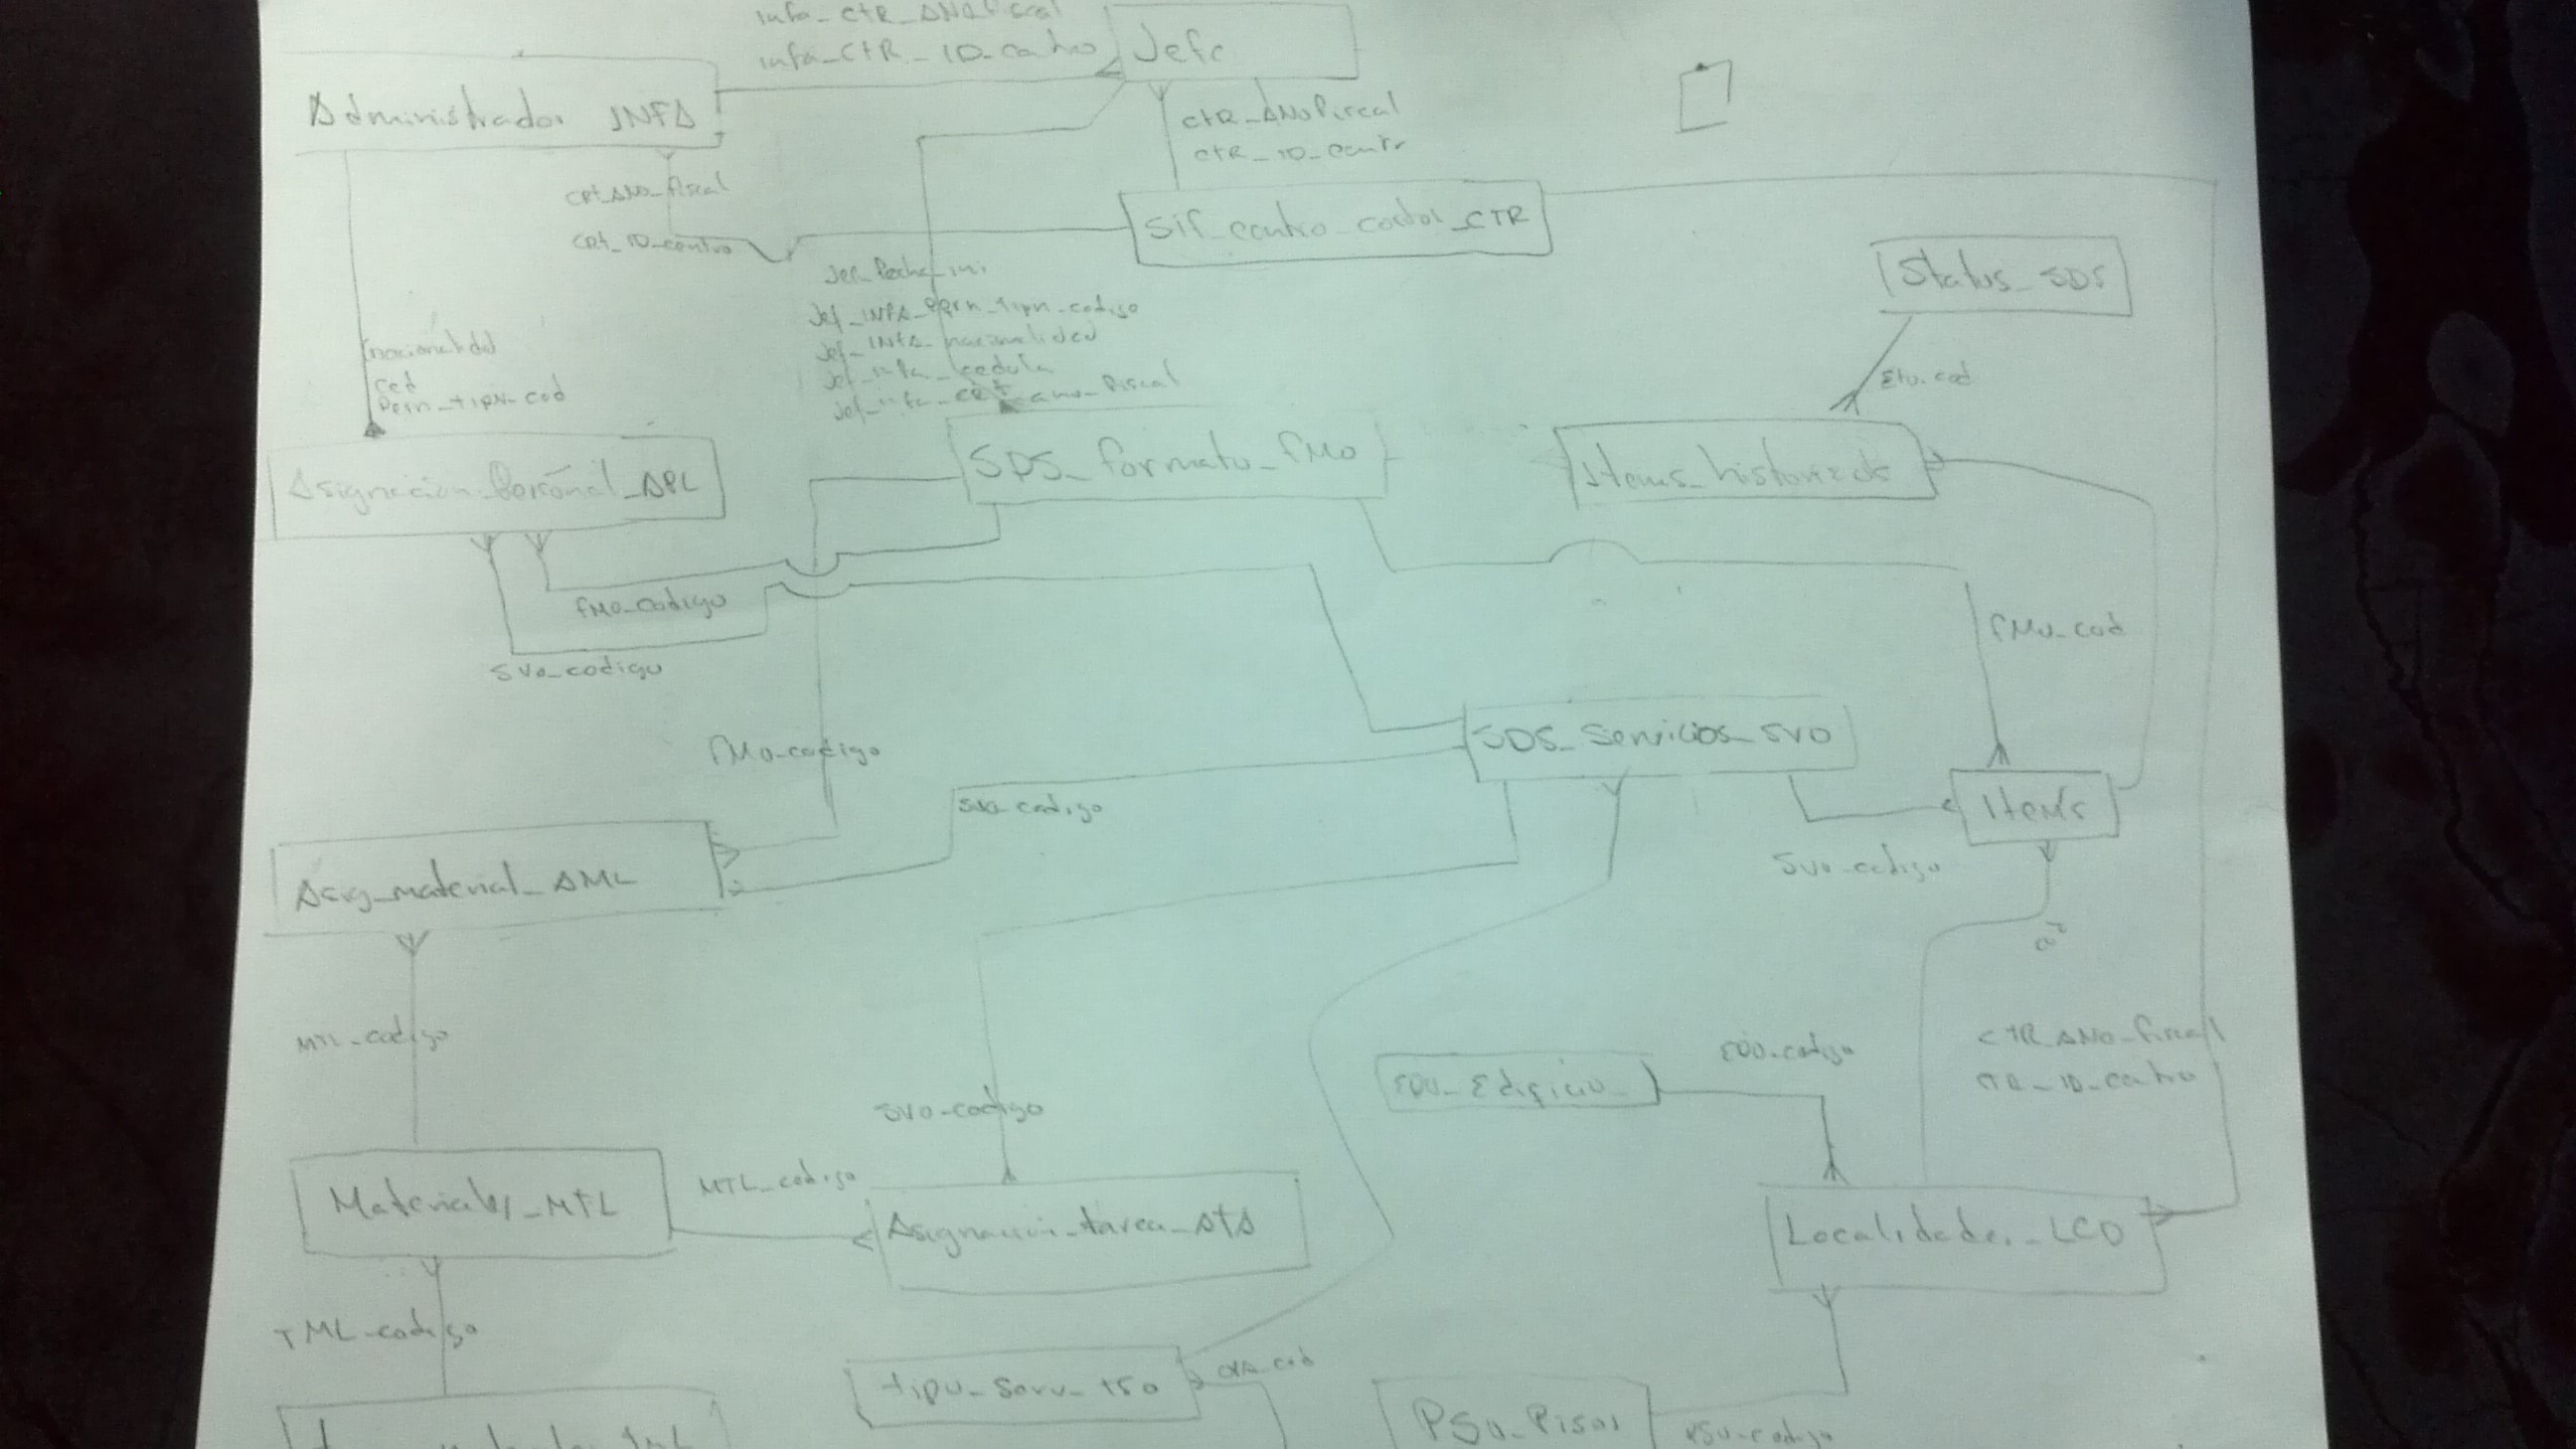 Infa_CTR_ANOfiscal
infa_CTR_ID_centro
Jefe
Administrador INFA
CTR_ANOfiscal
CTR_ID_centr
CRT_ANO_fiscal
CRT_ID_centro
Sif_centro_costos_CTR
Status_SDS
Jef_fecha_ini
Jef_INFA_Pern_tipn_codigo
Jef_INFA_nacionalidad
Jef_infa_cedula
Jef_infa_CRT_ano_fiscal
nacionalidad
Ced
Pern_tipn_cod
Etu.cod
SDS_formato_fMo
Items_historicos
Asignacion_Personal_APL
fMo_codigo
SVo_codigo
fMo_cod
SDS_Servicios_SVO
fMo_codigo
SVo_codigo
Items
SVo_codigo
Asig_material_AML
MTL_codigo
CTR_ANO_fiscal
CTR_ID_centro
EDU_codigo
EDU_Edificio_
SVo_codigo
Materiales_MTL
MTL_codigo
Asignacion_tarea_ATA
Localidades_LCD
TML_codigo
tipo_Serv_tSo
PSo_Pisos
PSo_codigo